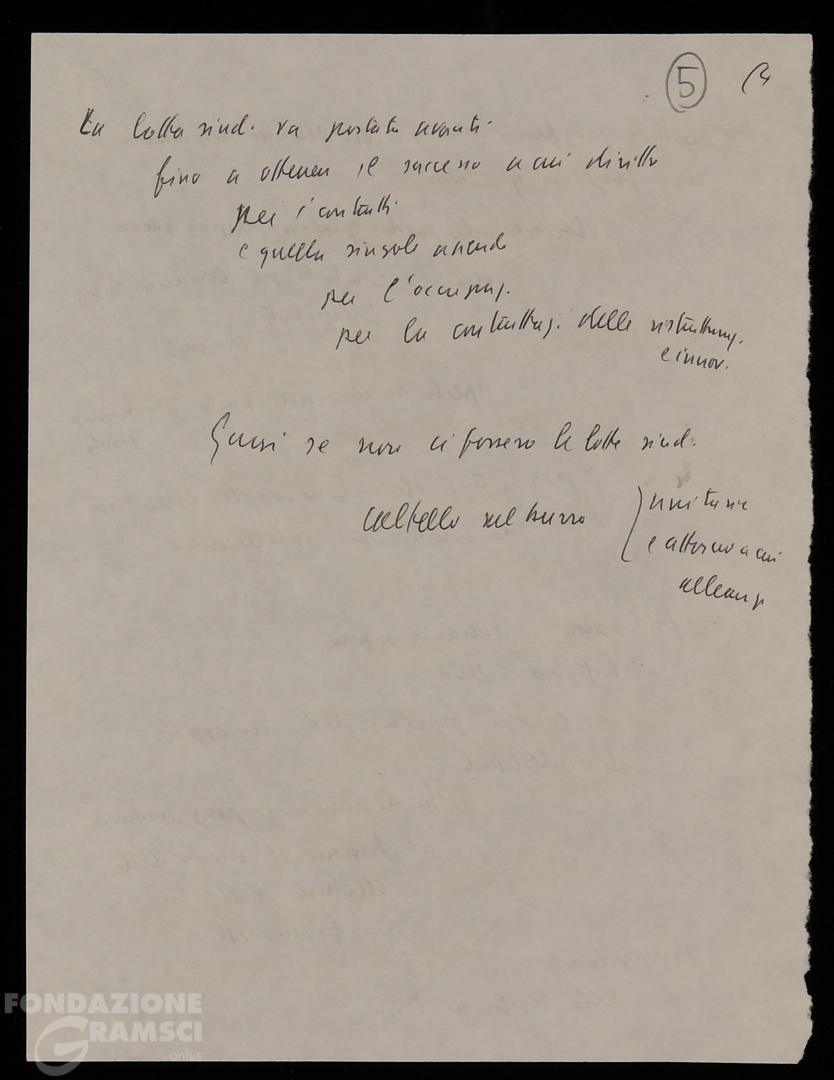 5
La lotta sind. va portata avanti
fino a ottenere il successo a cui diritto
per i contratti
e quella singole aziende
per l'occupaz.
per la contrattaz. delle ristrutturaz.
e innov.
Guai se non ci fossero le lotte sind.
coltello nel burro
unitarie
e attorno a cui
alleanze
FONDAZIONE
GRAMSCI
onlus